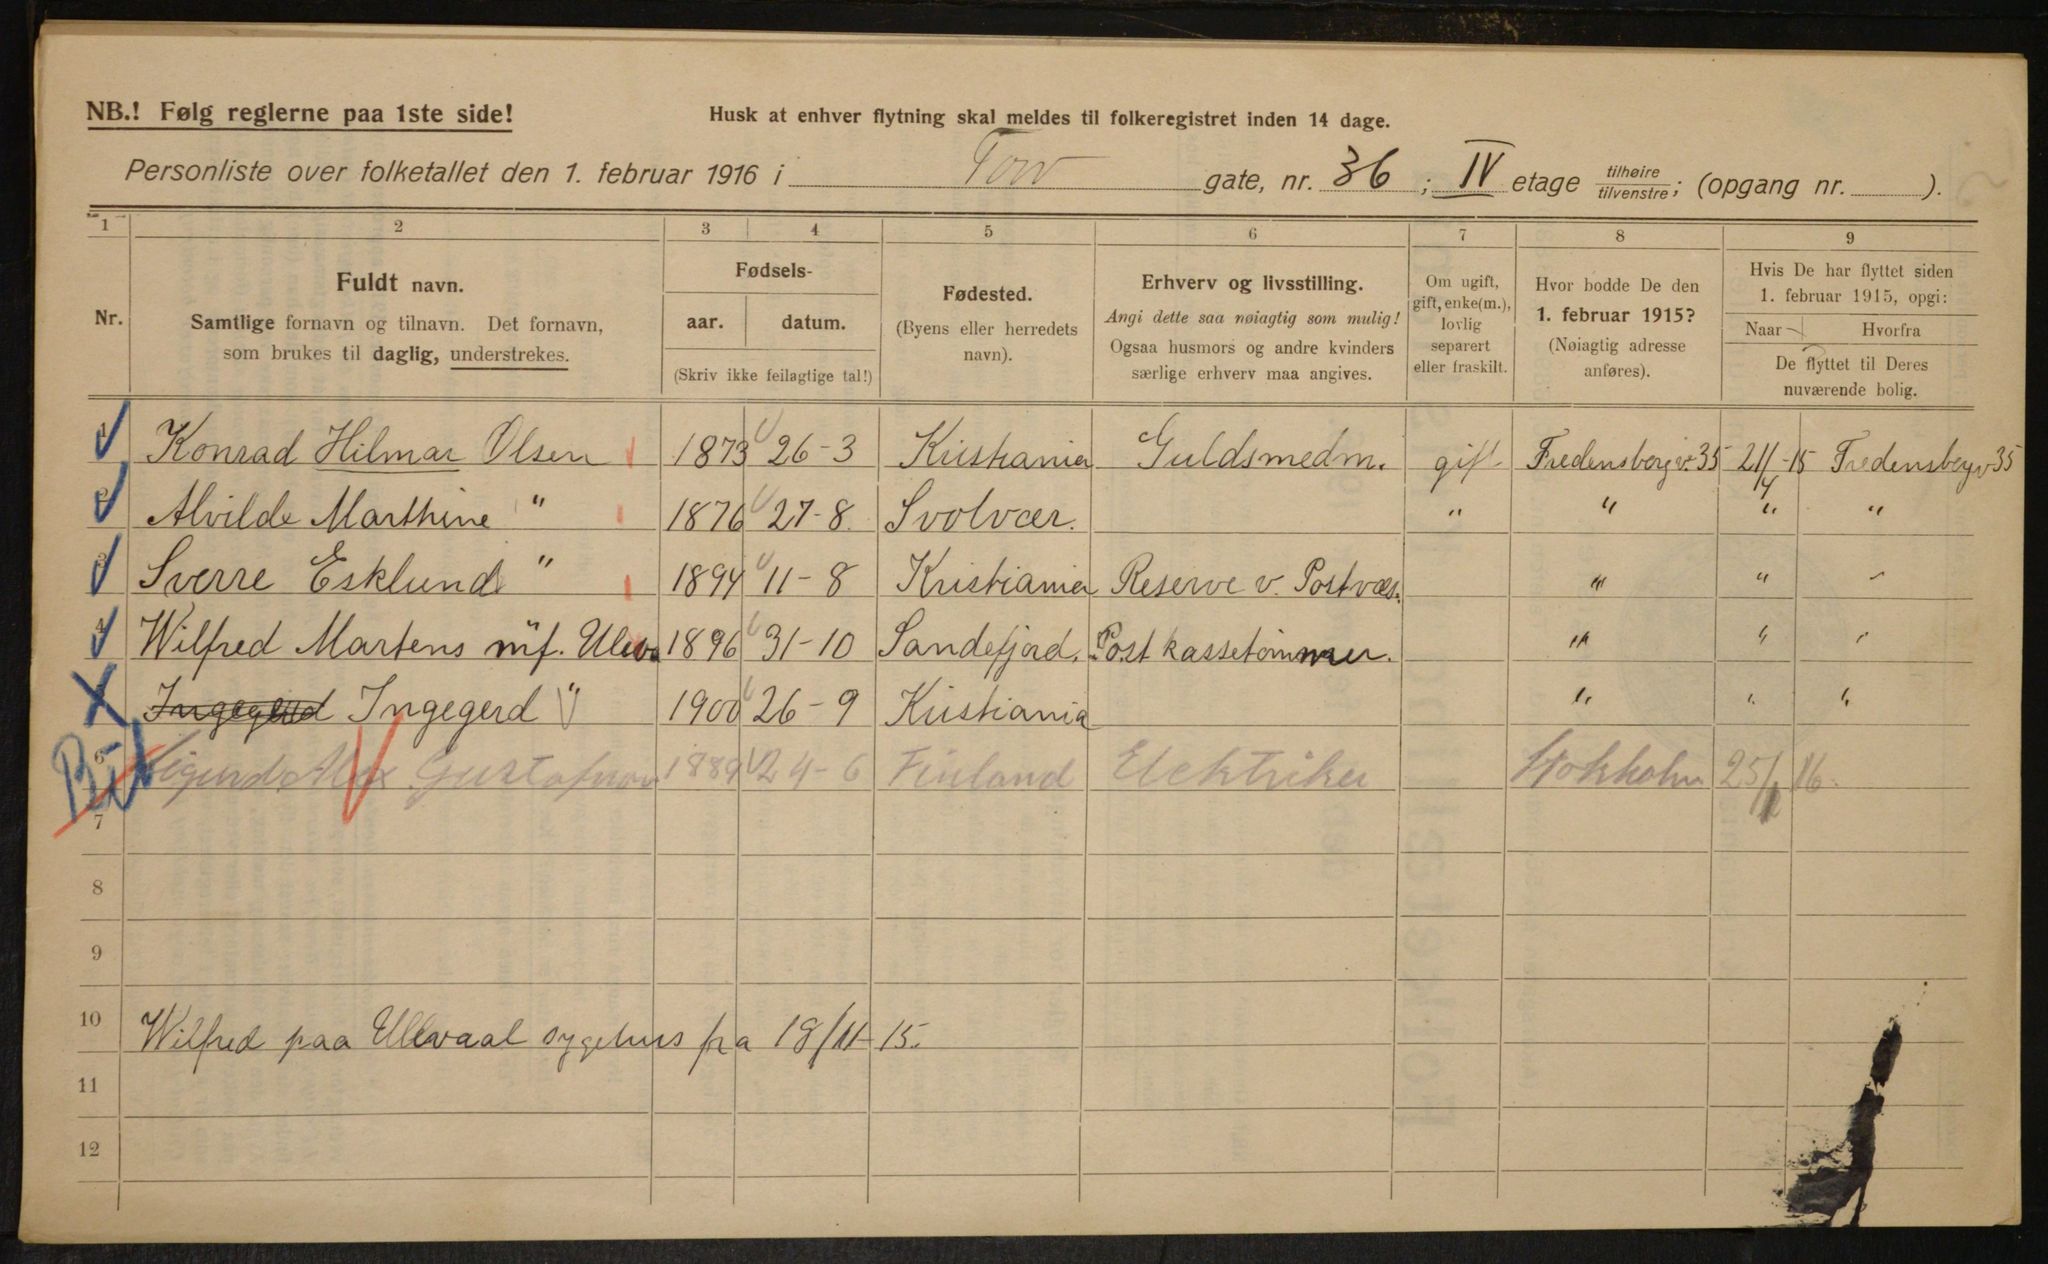 NB.! Følg reglerne paa 1ste side!
Husk at enhver flytning skal meldes til folkeregistret inden 14 dage.
Personliste over folketallet den 1. februar 1916 i Tow gate, nr. 36; IV etage tilhøire tilvenstre; (opgang nr. ).
1 2 3 4 5 6 7 8 9
Nr.
Fuldt navn.
Samtlige fornavn og tilnavn. Det fornavn,
som brukes til daglig, understrekes.
Fødsels-
aar. datum.
(Skriv ikke feilagtige tal!)
Fødested.
(Byens eller herredets
navn).
Erhverv og livsstilling.
Angi dette saa nøiagtig som mulig!
Ogsaa husmors og andre kvinders
særlige erhverv maa angives.
Om ugift,
gift, enke(m.),
lovlig
separert
eller fraskilt.
Hvor bodde De den
1. februar 1915?
(Nøiagtig adresse
anføres).
Hvis De har flyttet siden
1. februar 1915, opgi:
Naar Hvorfra
De flyttet til Deres
nuværende bolig.
1 Konrad Hilmar Olsen 1873 26-3 Kristiania Guldsmedm. gift Fredensborgv. 35 21/4-15 Fredensborgv 35
2 Alvilde Marthine " 1876 27-8. Svolvær. " " " "
3 Sverre Esklund " 1894 11-8 Kristiania Reserve v. Postvæs. " " "
4 Wilfred Martens 1896 31-10 Sandefjord. Postkassetømmer. " " "
Ingegerd Ingegerd " 1900 26-9 Kristiania " " "
6 Sigurd Alex Gustafson 1889 24-6 Finland Elektriker Stokholm 25/1 16.
7
8
9
10 Wilfred paa Ullevaal sygehus fra 18/11-15.
11
12